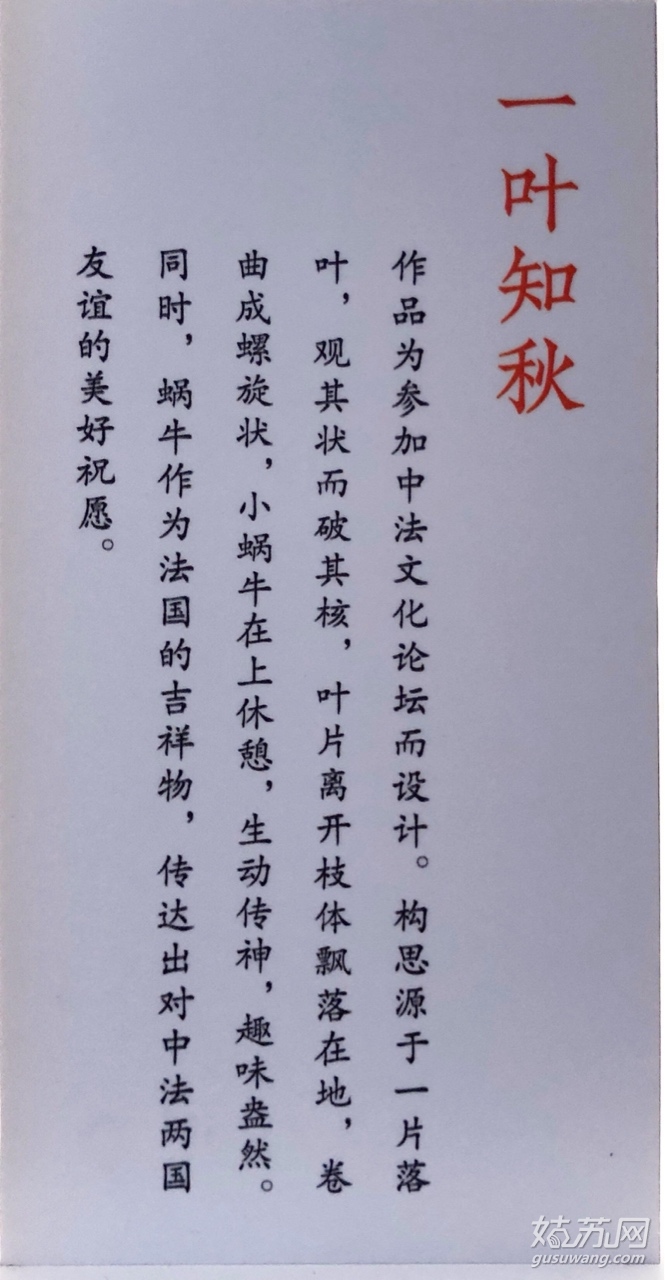 一叶知秋
作品为参加中法文化论坛而设计。构思源于一片落
叶，观其状而破其核，叶片离开枝体飘落在地，卷
曲成螺旋状，小蜗牛在上休憩，生动传神，趣味盎然。
同时，蜗牛作为法国的吉祥物，传达出对中法两国
友谊的美好祝愿。
姑苏网
gusuwang.com